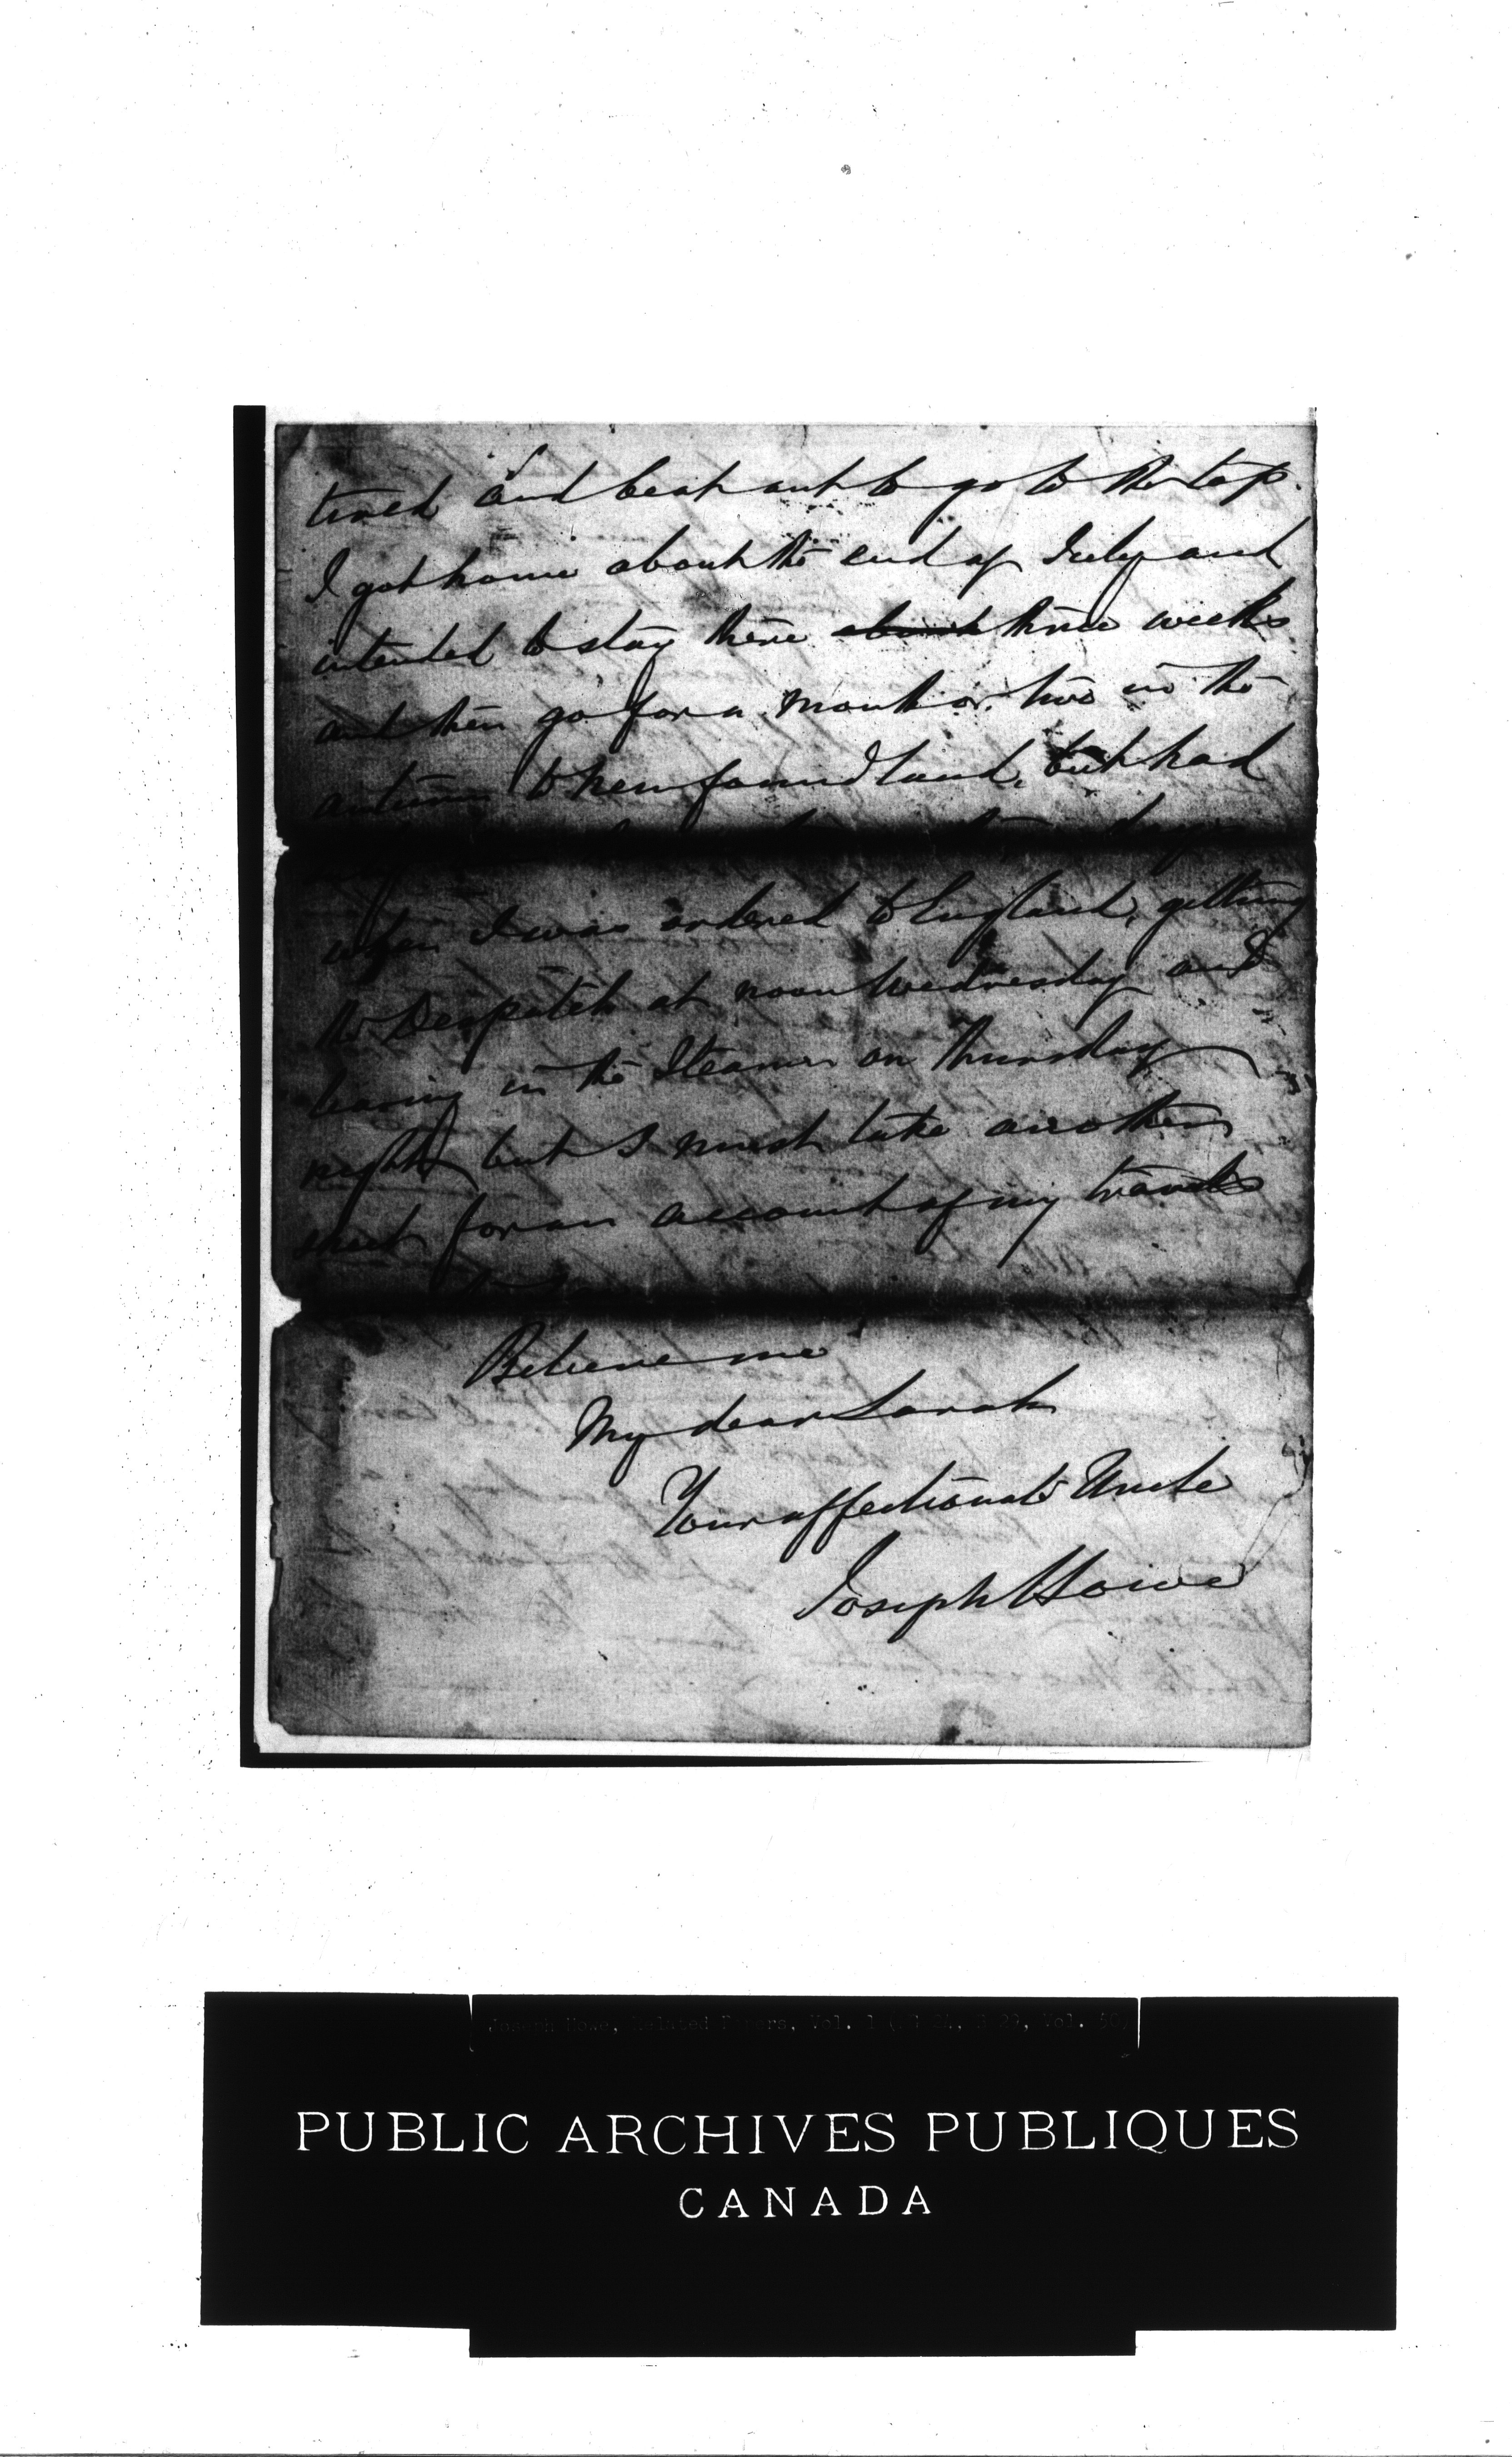 tired and beat out to go to the top.
I got home about the end of July and
intended to stay there about three weeks
and then go for a month or two in the
autumn to Newfoundland, but had
days
when I was ordered to England, getting
the Despatch at noon Wednesday and
leaving in the Steamer on Thursday
night but I must take another
sheet for an account of my travels
Believe me
My dear Sarah
Your affectionate Uncle
Joseph Howe
Joseph Howe, Related Papers, Vol. 1 (MG 24, B 29, Vol. 50)
PUBLIC ARCHIVES PUBLIQUES
CANADA